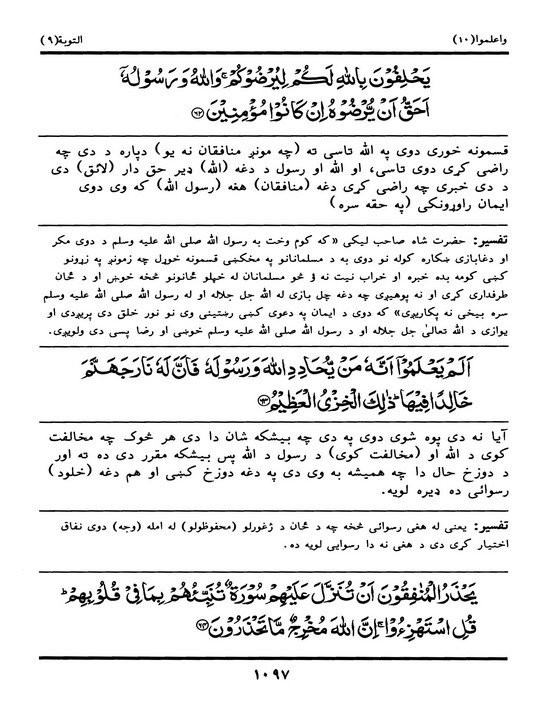 واعلموا(١٠)
التوبة(٩)
يَحْلِفُوْنَ بِاللّٰهِ لَكُمْ لِيُرْضُوْكُمْ ۚ وَاللّٰهُ وَرَسُوْلُهٗٓ
اَحَقُّ اَنْ يُّرْضُوْهُ اِنْ كَانُوْا مُؤْمِنِيْنَ ﴿٦٢﴾
قسمونه خوري دوی په الله تاسې ته (چه مونږ منافقان نه يو) دپاره د دې چه
راضي کړي دوی تاسې، او الله او رسول د دغه (الله) ډير حق دار (لائق) دي
د دې خبرې چه راضي کړي دغه (منافقان) هغه (رسول الله) که وي دوی
ايمان راوړونکي (په حقه سره)
تفسير: حضرت شاه صاحب ليکي «که کوم وخت به رسول الله صلی الله عليه وسلم د دوی مکر
او دغابازي ښکاره کوله نو دوی به د مسلمانانو په مخکښې قسمونه خوړل چه زمونږ په زړونو
کښې کومه بده خبره او خراب نيت نه ؤ څو مسلمانان له خپلو ځانونو څخه خوښ او د ځان
طرفداري کړي او نه پوهيږي چه دغه چل بازي له الله جل جلاله او له رسول الله صلی الله عليه وسلم
سره بيخي نه پکاريږي» که دوی د ايمان په دعوی کښې رښتيني وي نو نور خلق دې پريږدي او
يوازې د الله تعالیٰ جل جلاله او د رسول الله صلی الله عليه وسلم خوښي او رضا پسې دې ولويږي.
اَلَمْ يَعْلَمُوْٓا اَنَّهٗ مَنْ يُّحَادِدِ اللّٰهَ وَرَسُوْلَهٗ فَاَنَّ لَهٗ نَارَ جَهَنَّمَ
خَالِدًا فِيْهَا ۭ ذٰلِكَ الْخِزْىُ الْعَظِيْمُ ﴿٦٣﴾
آيا نه دي پوه شوي دوی په دې چه بيشکه شان دا دی هر څوک چه مخالفت
کوي د الله او (مخالفت کوي) د رسول د الله پس بيشکه مقرر دي ده ته اور
د دوزخ حال دا چه هميشه به وي دی په دغه دوزخ کښې او هم دغه (خلود)
رسوائي ده ډيره لويه.
تفسير: يعنې له هغې رسوائي څخه چه د ځان د ژغورلو (محفوظولو) له امله (وجه) دوی نفاق
اختيار کړی دی د هغې نه دا رسوايي لويه ده.
يَحْذَرُ الْمُنٰفِقُوْنَ اَنْ تُنَزَّلَ عَلَيْهِمْ سُوْرَةٌ تُنَبِّئُهُمْ بِمَا فِىْ قُلُوْبِهِمْ ۭ
قُلِ اسْتَهْزِءُوْا ۚ اِنَّ اللّٰهَ مُخْرِجٌ مَّا تَحْذَرُوْنَ ﴿٦٤﴾
١٠٩٧